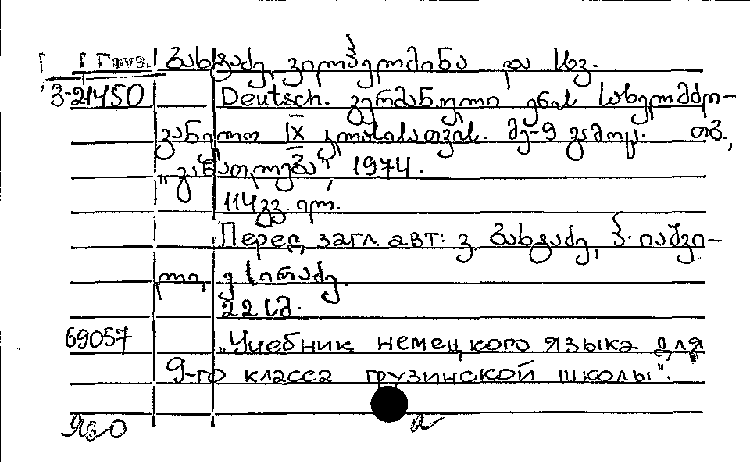 გახვაძე, ვილჰელმინა და სხვ.
3-21450 Deutsch. გერმანული ენის სახელმძღ-
ვანელო IX კლასისათვის. მე-9 გამოც. თბ.,
„განათლება", 1974.
114 გვ. ილ.
Перед загл. авт: ვ. გახვაძე,
22 სმ.
69057 „Учебник немецкого языка для
9-го класса грузинской школы".